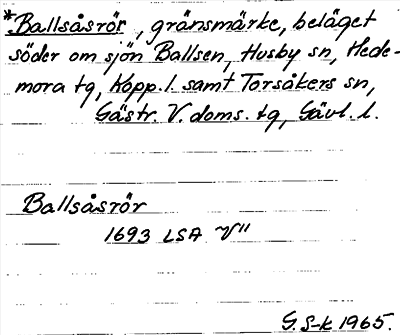 *Ballsåsrör, gränsmärke, beläget
söder om sjön Ballsen, Husby sn, Hede-
mora tg, Kopp. l. samt Torsåkers sn,
Gästr. V. doms. tg, Gävl. l.
Ballsåsrör
1693 LSA V"
G. S-k 1965.